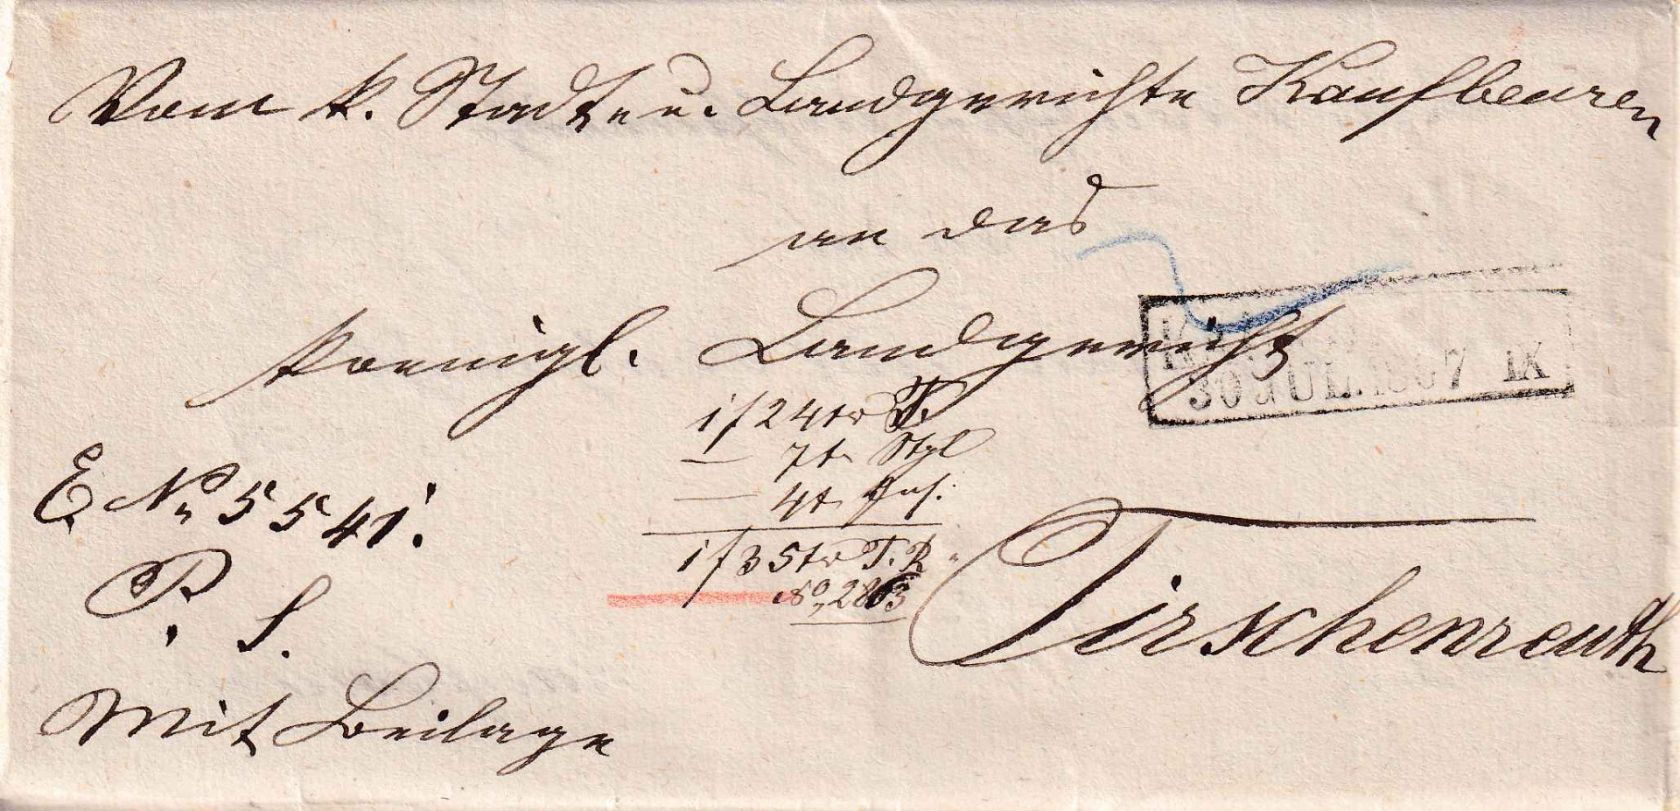 Vom k. Stadt- u. Landgerichte Kaufbeuren
an das
koenigl. Landgericht
30 JUL. 1867 IX
1 f 24 kr T.
— 7 kr
— 4 kr
E. Nr 5541.
1 f 35 kr T. R
No, 2863
P. S.
Tirschenreuth
Mit Beilage